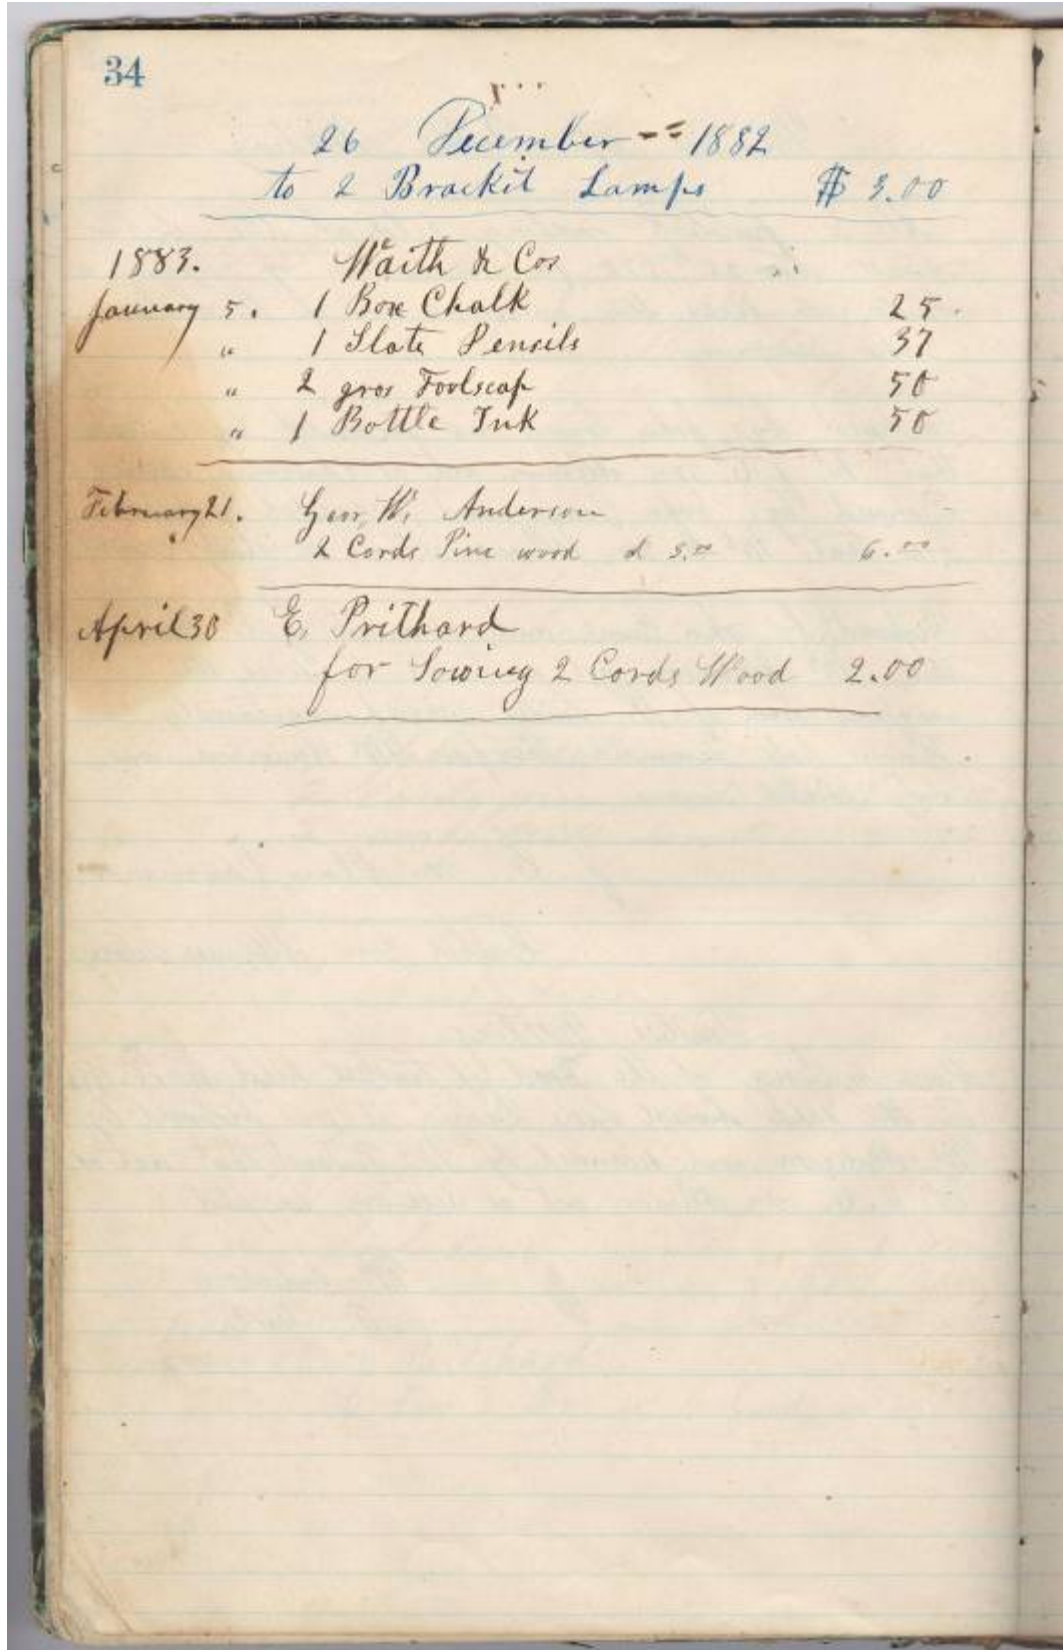 34
26 December -- 1882
to 2 Brackit Lamps $ 3.00
1883. Waith & Cos
January 5. 1 Box Chalk 25
" 1 Slate Pensils 37
" 2 gros Foolscap 50
" 1 Bottle Ink 50
February 21. Geor. W. Anderson
2 Cords Pine wood 6.00
April 30 E. Prithard
for Sowing 2 Cords Wood 2.00